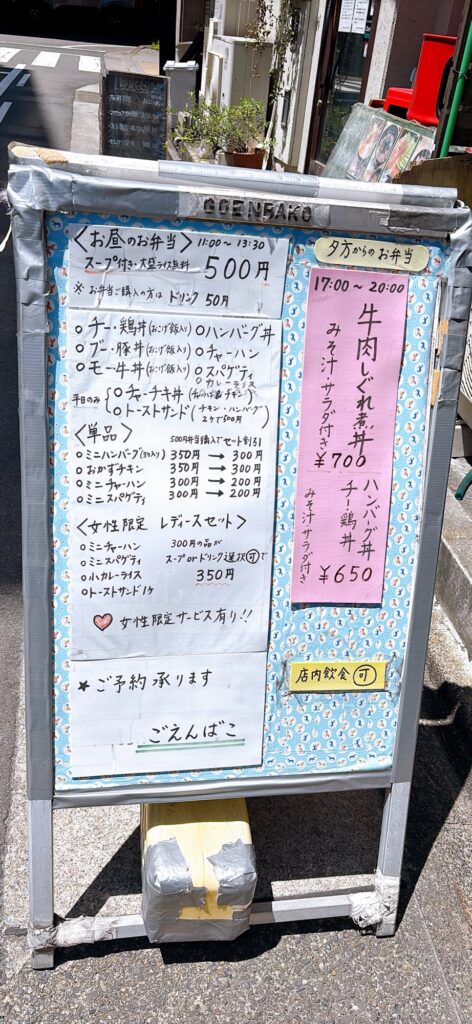 GOENBAKO
<お昼のお弁当> 11:00～13:30
スープ付き・大盛ライス無料 500円
※お弁当ご購入の方は ドリンク 50円
○チー・鶏丼(おこげ飯入り) ○ハンバーグ丼
○ブー・豚丼(おこげ飯入り) ○チャーハン
○モー牛丼(おこげ飯入り) ○スパゲティ
○カレーライス
平日のみ
○チャーチキ丼
○トーストサンド(チキン・ハンバーグ
2ケで500円)
<単品> 500円弁当購入でセット割引
○ミニハンバーグ 350円→300円
○おかずチキン 350円→300円
○ミニチャーハン 300円→200円
○ミニスパゲティ 300円→200円
<女性限定 レディースセット>
○ミニチャーハン 300円の品が
○ミニスパゲティ スープorドリンク選択可で
○小カレーライス 350円
○トーストサンド1ケ
♡女性限定サービス有り!!
★ご予約承ります
ごえんばこ
夕方からのお弁当
17:00～20:00
牛肉しぐれ煮丼
みそ汁・サラダ付き
¥700
ハンバーグ丼
チー・鶏丼
みそ汁・サラダ付き
¥650
店内飲食可